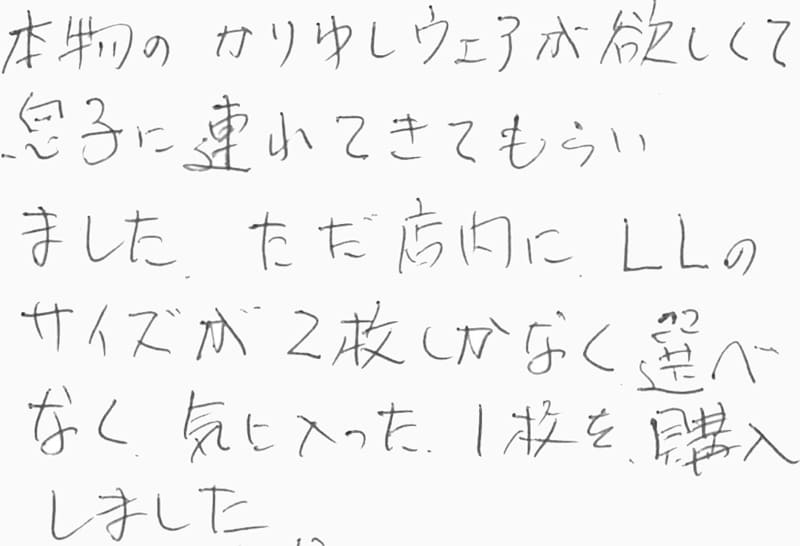 本物の かりゆしウェアが欲しくて
息子に連れてきてもらい
ました. ただ店内に. LLの
サイズが2枚しかなく選べ
なく. 気に入った. 1枚を.購入
しました